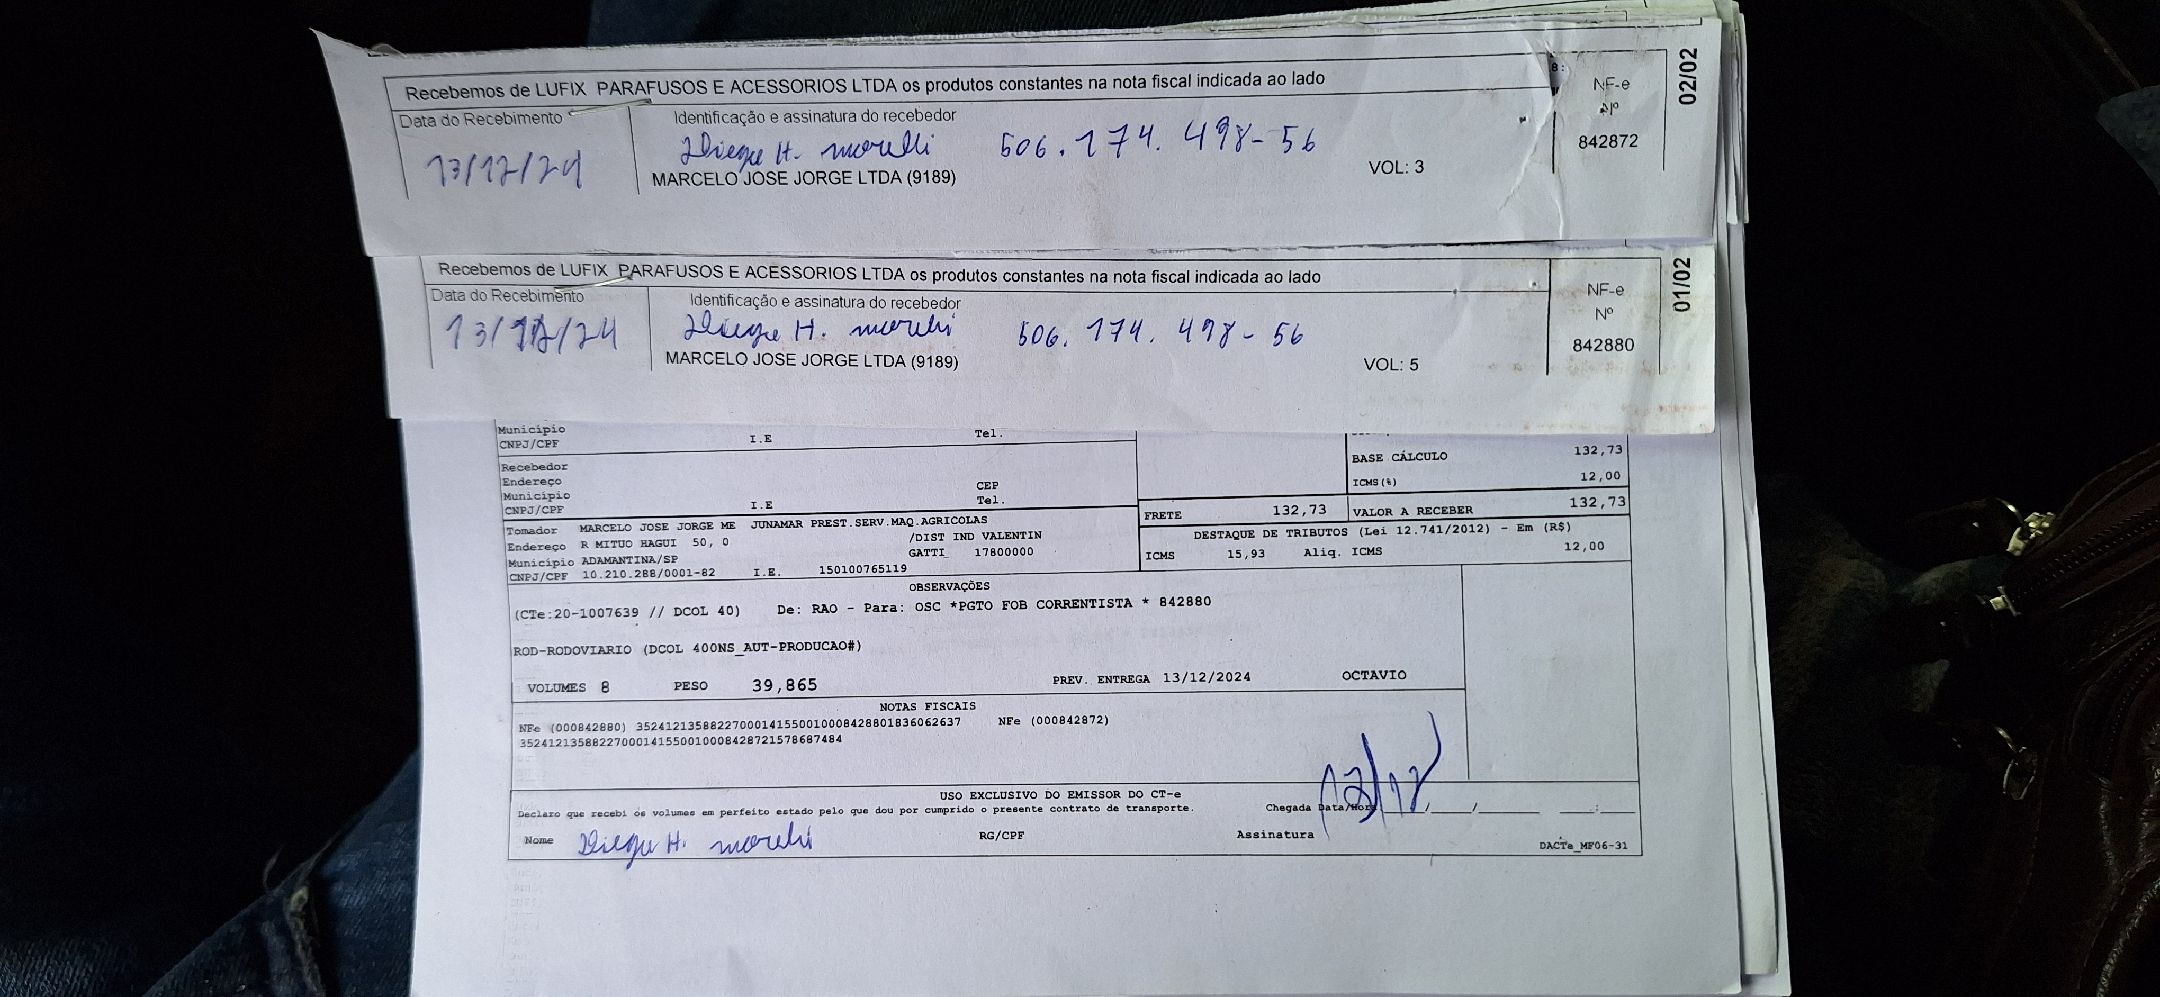 Recebemos de LUFIX PARAFUSOS E ACESSORIOS LTDA os produtos constantes na nota fiscal indicada ao lado
NF-e
Nº
842872
02/02
Data do Recebimento
Identificação e assinatura do recebedor
13/12/24
Diego H. morelli 506.174.498-56
MARCELO JOSE JORGE LTDA (9189)
VOL: 3
Recebemos de LUFIX PARAFUSOS E ACESSORIOS LTDA os produtos constantes na nota fiscal indicada ao lado
NF-e
Nº
842880
01/02
Data do Recebimento
Identificação e assinatura do recebedor
13/12/24
Diego H. morelli 506.174.498-56
MARCELO JOSE JORGE LTDA (9189)
VOL: 5
Município
CNPJ/CPF I.E Tel.
BASE CÁLCULO 132,73
ICMS(%) 12,00
Recebedor
Endereço CEP
Município Tel.
CNPJ/CPF I.E
FRETE 132,73 VALOR A RECEBER 132,73
Tomador MARCELO JOSE JORGE ME JUNAMAR PREST.SERV.MAQ.AGRICOLAS
Endereço R MITUO HAGUI 50, 0 /DIST IND VALENTIN
Município ADAMANTINA/SP GATTI 17800000
CNPJ/CPF 10.210.288/0001-82 I.E. 150100765119
DESTAQUE DE TRIBUTOS (Lei 12.741/2012) - Em (R$)
ICMS 15,93 Aliq. ICMS 12,00
OBSERVAÇÕES
(CTe:20-1007639 // DCOL 40) De: RAO - Para: OSC *PGTO FOB CORRENTISTA * 842880
ROD-RODOVIARIO (DCOL 400NS_AUT-PRODUCAO#)
VOLUMES 8 PESO 39,865 PREV. ENTREGA 13/12/2024 OCTAVIO
NOTAS FISCAIS
NFe (000842880) 35241213588227000141550010008428801836062637 NFe (000842872)
35241213588227000141550010008428721578687484
USO EXCLUSIVO DO EMISSOR DO CT-e
Declaro que recebi os volumes em perfeito estado pelo que dou por cumprido o presente contrato de transporte. Chegada Data/Hora ___/___/______ ___:___
Nome Diego H. morelli RG/CPF Assinatura
DACTe_MF06-31